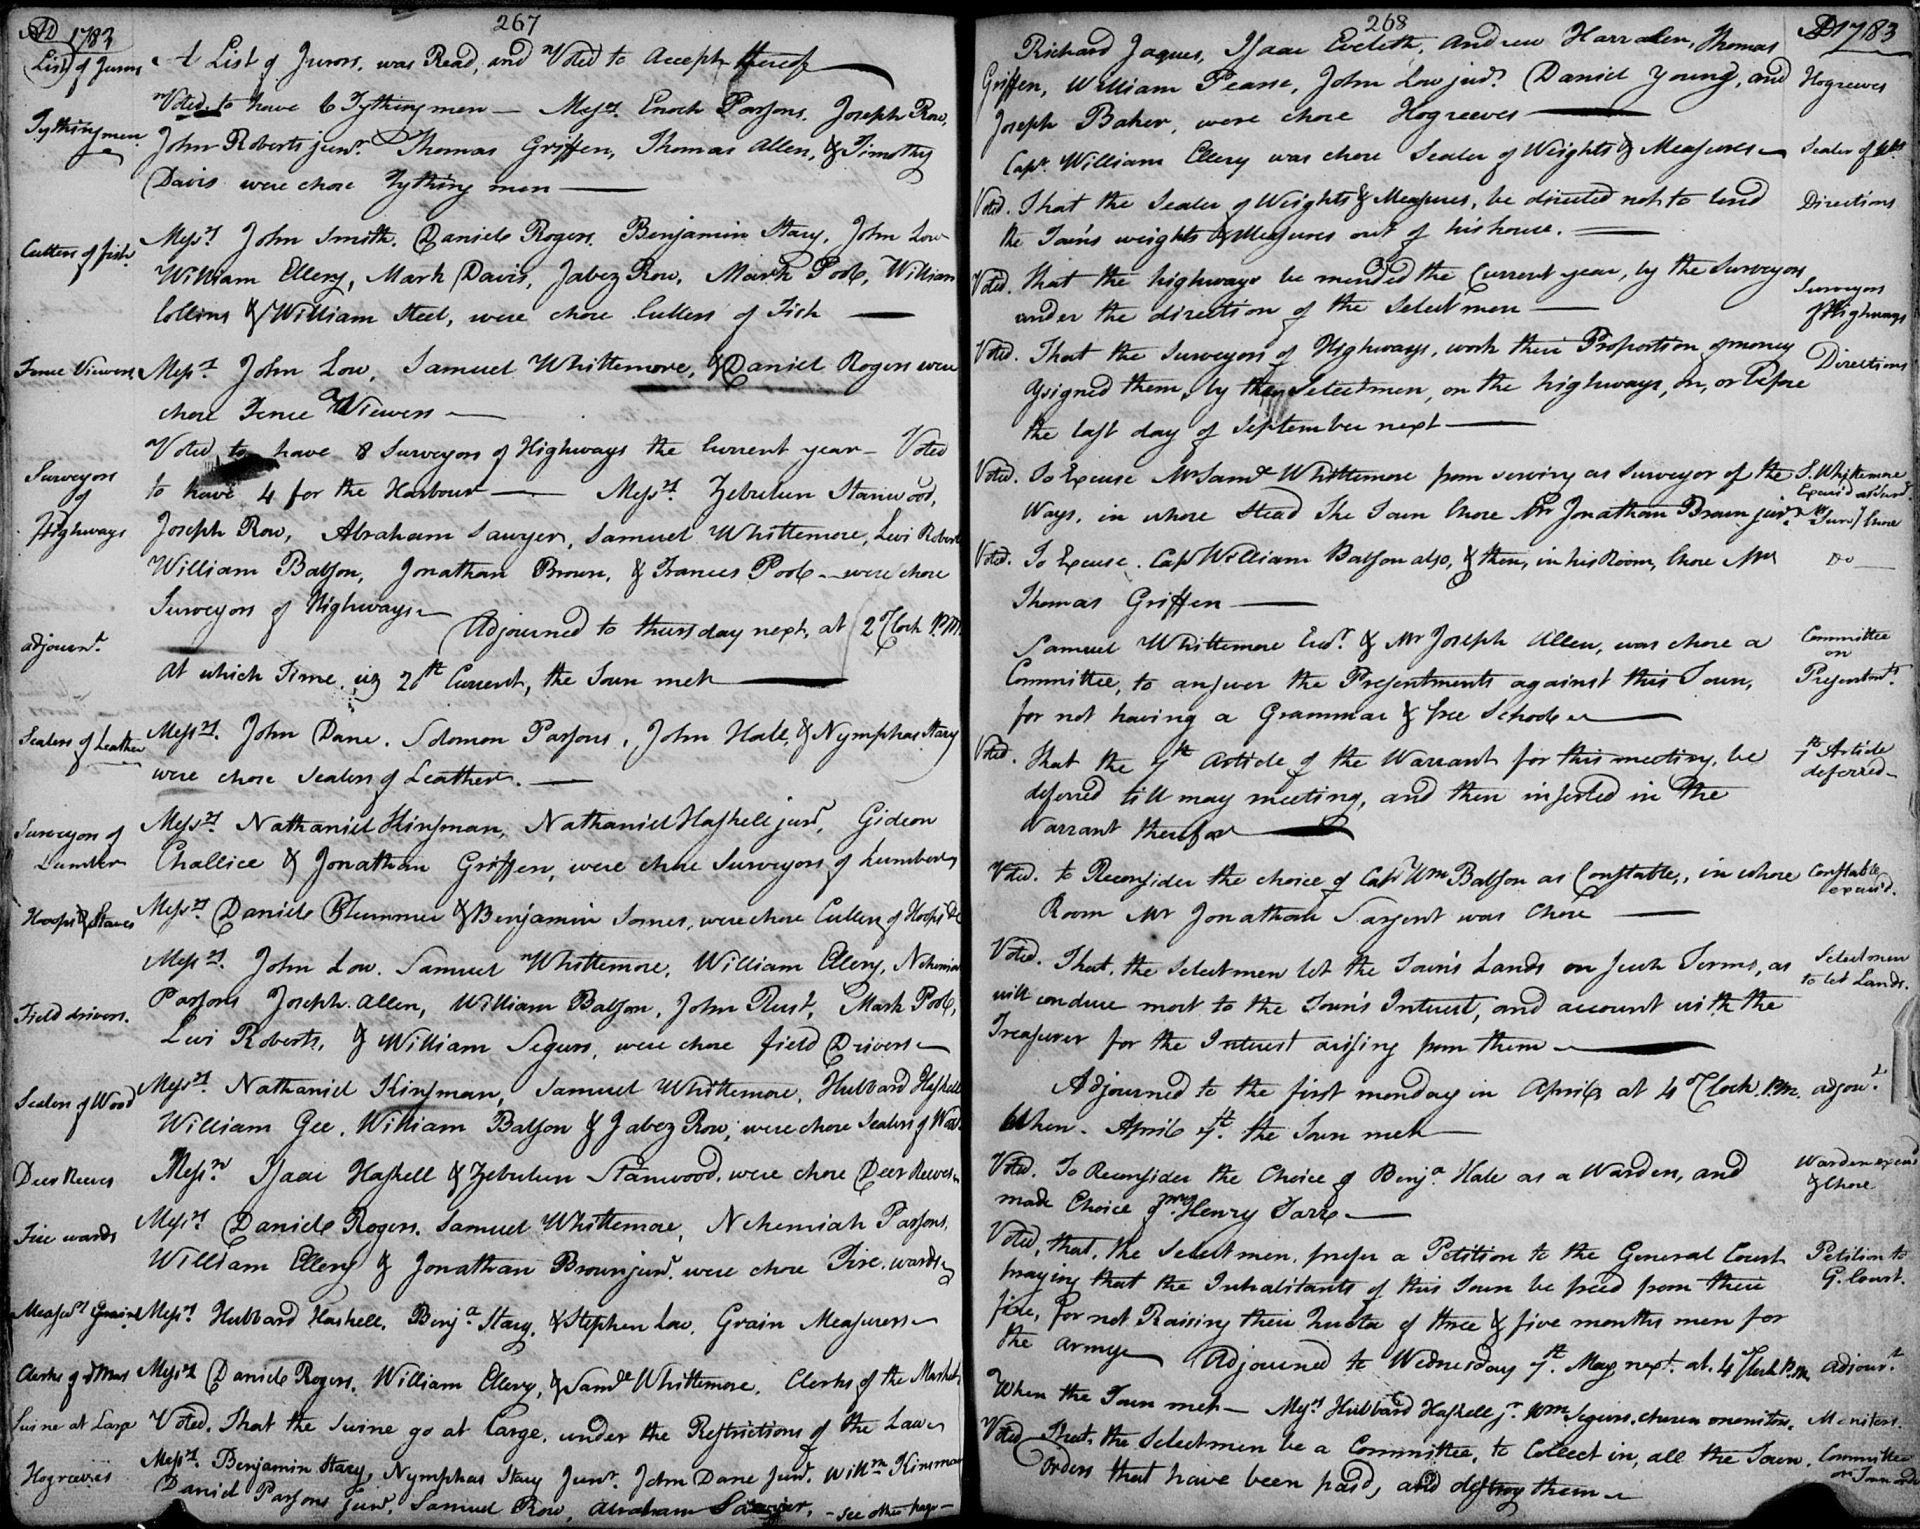 267
AD 1783
List of Jurors
A List of Jurors, was Read, and Voted to Accept thereof
Tythingmen
Voted, to have 6 Tythingmen — Messrs. Enoch Parsons, Joseph Row,
John Roberts junr. Thomas Griffen, Thomas Allen, & Timothy
Davis were chose Tything men
Cullers of fish
Messrs. John Smith, Daniel Rogers, Benjamin Stacy, John Low
William Ellery, Mark Davis, Jabez Row, Mark Pool, William
Collins & William Steel, were chose Cullers of Fish
Fence Viewers
Messrs. John Low, Samuel Whittemore, & Daniel Rogers were
chose Fence Viewers
Surveyors
of
Highways
Voted to have 8 Surveyors of Highways the Current year — Voted
to have 4 for the Harbour — Messrs. Zebulun Stanwood,
Joseph Row, Abraham Sawyer, Samuel Whittemore, Levi Roberts
William Balson, Jonathan Brown, & Frances Pool — were chose
Surveyors of Highways
adjournt.
Adjourned to thursday next, at 2 oClock P.M.
At which Time, viz 20th Current, the Town met
Sealers of Leather
Messrs. John Dane, Solomon Parsons, John Hale, & Nymphas Stacy
were chose Sealers of Leather.
Surveyors of
Lumber
Messrs. Nathaniel Kinsman, Nathaniel Haskell junr, Gideon
Challice & Jonathan Griffen, were chose Surveyors of Lumber
Hoops & Staves
Messrs. Daniel Plummer & Benjamin Somes, were chose Cullers of Hoops &c
Field drivers.
Messrs. John Low, Samuel Whittemore, William Ellery, Nehemiah
Parsons Joseph Allen, William Balson, John Rust, Mark Pool,
Levi Roberts, & William Segurs, were chose field Drivers
Sealers of Wood
Messrs. Nathaniel Kinsman, Samuel Whittemore, Hubbard Haskell
William Gee, William Balson & Jabez Row, were chose Sealers of Wood
Deer Reeves
Messrs. Isaac Haskell & Zebulun Stanwood, were chose Deer Reeves
Fire wards
Messrs. Daniel Rogers, Samuel Whittemore, Nehemiah Parsons,
William Ellery & Jonathan Brown junr. were chose Fire wards
Measurs Grain
Messrs. Hubbard Haskell, Benja. Stacy, & Stephen Low, Grain Measurers
Clerks of Mar
Messrs Daniel Rogers, William Ellery, & Saml Whittemore, Clerks of the Market
Swine at Large
Voted, That the Swine go at Large, under the Restrictions of the Law
Hogreeves
Messrs. Benjamin Stacy, Nymphas Stacy Junr. John Dane Junr. Willm Kinsman
Daniel Parsons Junr, Samuel Row, Abraham Sawyer, — See other page —
268
AD 1783
Richard Jaques, Isaac Eveleth, Andrew Harraden, Thomas
Griffen, William Pearse, John Low junr. Daniel Young, and
Hogreeves
Joseph Baker, were chose Hogreeves
Capt. William Ellery was chose Sealer of Weights & Measures
Sealer of Wts
Voted. That the Sealer of Weights & Measures, be directed not to lend
Directions
the Town's weights & Measures out of his house.
Voted. That the highways be mended the Current year, by the Surveyors
Surveyors
of Highways
under the direction of the Selectmen
Voted. That the Surveyors of Highways, work their Proportion of money
Directions
Assigned them, by the Selectmen, on the highways, on, or before
the last day of September next
Voted. To Excuse Mr Saml Whittemore from serving as Surveyor of the
S. Whittemore
Excus'd as Surv.
Ways, in whose Stead the Town Chose Mr Jonathan Brown junr.
Voted. To Excuse Capt William Balson also, & then, in his Room, Chose Mr
Do
Thomas Griffen
Samuel Whittemore Esqr. & Mr Joseph Allen, was chose a
Committee
on
Presentmts.
Committee, to answer the Presentments against this Town,
for not having a Grammar & free School
Voted. That the 7th Article of the Warrant for this meeting, be
7th Article
deferred
deferred till may meeting, and then inserted in the
Warrant therefor
Voted. to Reconsider the choice of Capt Wm Balson as Constable, in whose
Constable
excus'd.
Room Mr Jonathan Sargent was Chose
Voted. That, the Selectmen let the Town's Lands on such Terms, as
Selectmen
to let Lands.
will conduce most to the Town's Interest, and account with the
Treasurer for the Interest arising from them
Adjourned to the first monday in April, at 4 oClock P.M.
adjournt.
When, April 7th. the Town met
Voted. To Reconsider the Choice of Benja. Hale as a Warden, and
Warden excus'd
& Chose
made Choice of Mr Henry Tarr
Voted, that, the Selectmen, prefer a Petition to the General Court
Petition to
G. Court.
praying that the Inhabitants of this Town be freed from their
fine, for not Raising their Quota of three & five months men for
the army
Adjourned to Wednesday 7th. May next, at 4 oClock P.M.
adjournt.
When the Town met — Messrs Hubbard Haskell jr. Wm Segurs, chosen monitors.
Monitors.
Voted That, the Selectmen be a Committee, to Collect in, all the Town
Committee
on Town orders
Orders that have been paid, and destroy them